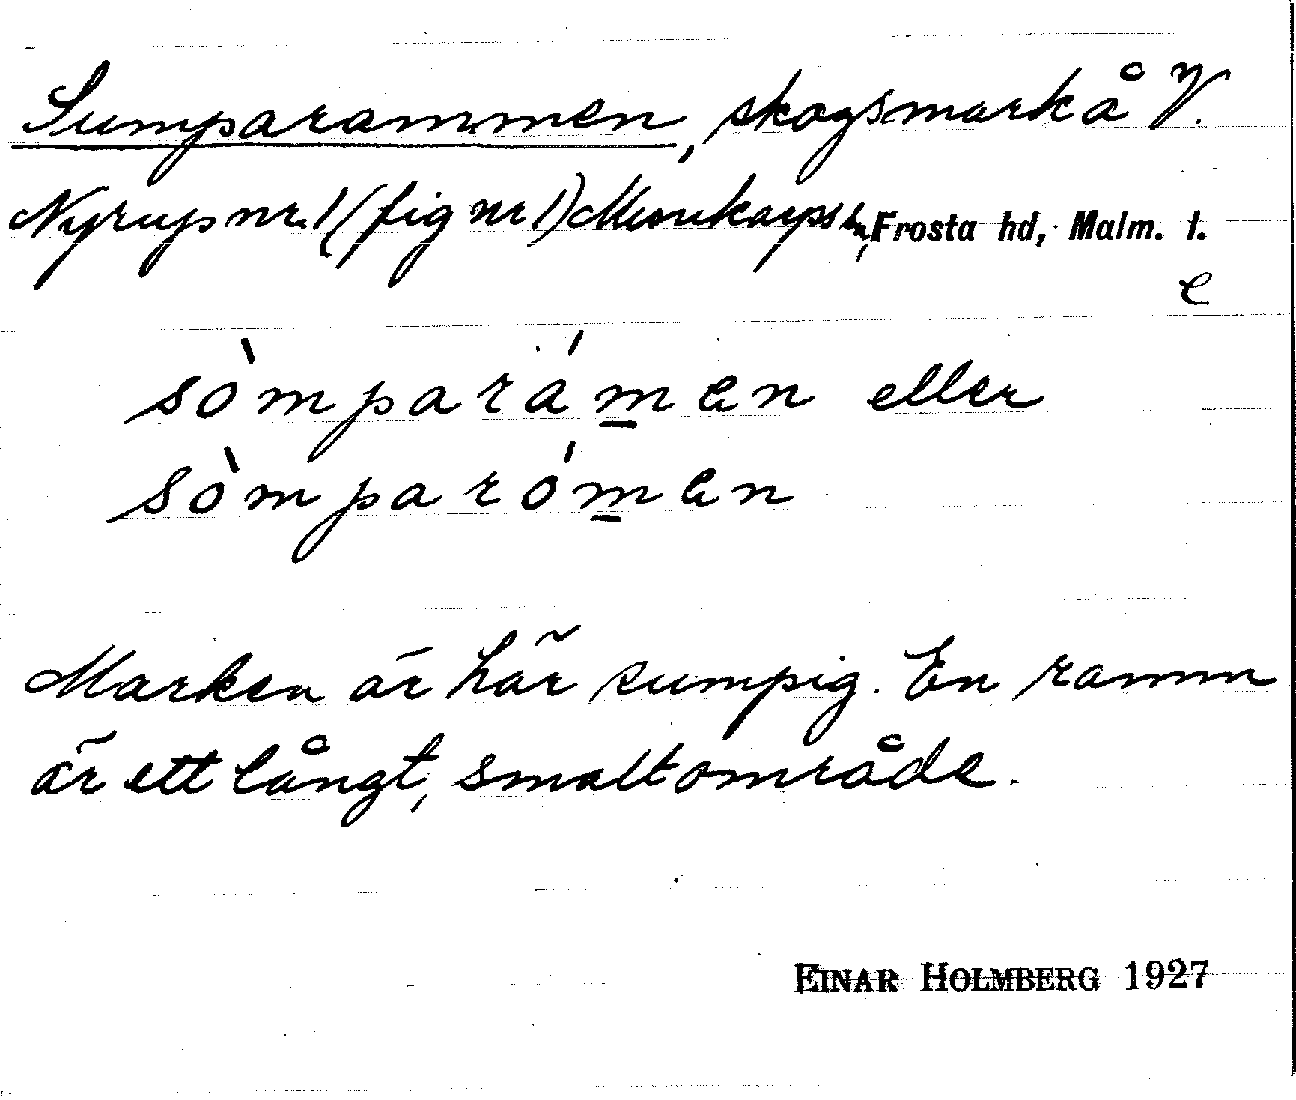 Sumparammen, skogsmark å V.
Nyrup nr. 1 (fig nr 1) Munkarps sn, Frosta hd, Malm. l.
e
sòmparámen eller
sòmparómen
Marken är här sumpig. En ramm
är ett långt, smalt område.
EINAR HOLMBERG 1927